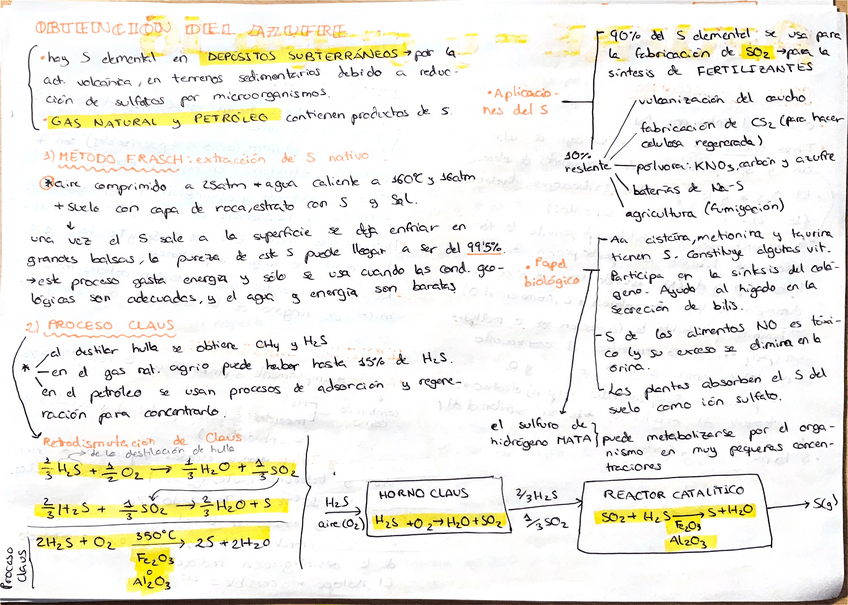 OBTENCIÓN DEL AZUFRE
• hay S elemental en DEPÓSITOS SUBTERRÁNEOS → por la
act. volcánica, en terrenos sedimentarios debido a reduc-
ción de sulfatos por microorganismos.
• GAS NATURAL y PETRÓLEO contienen productos de S.
1) MÉTODO FRASCH: extracción de S nativo
* aire comprimido a 25atm + agua caliente a 160ºC y 16atm
+ suelo con capa de roca, estrato con S y Sal.
↓
una vez el S sale a la superficie se deja enfriar en
grandes balsas, la pureza de este S puede llegar a ser del 99'5%.
→ este proceso gasta energía y sólo se usa cuando las cond. geo-
lógicas son adecuadas, y el agua y energía son baratas
2) PROCESO CLAUS
* al destilar hulla se obtiene CH4 y H2S
en el gas nat. agrio puede haber hasta 15% de H2S.
en el petróleo se usan procesos de adsorción y regene-
ración para concentrarlo.
Retrodismutación de Claus
de la destilación de hulla
1/3 H2S + 1/2 O2 → 1/3 H2O + 1/3 SO2
2/3 H2S + 1/3 SO2 → 2/3 H2O + S
2H2S + O2 350ºC → 2S + 2H2O
Fe2O3
o
Al2O3
Proceso
Claus
• Aplicacio-
nes del S
90% del S elemental se usa para
la fabricación de SO2 → para la
síntesis de FERTILIZANTES
10%
restante
vulcanización del caucho.
fabricación de CS2 (para hacer
celulosa regenerada)
pólvora: KNO3, carbón y azufre
baterías de Na-S
agricultura (fumigación)
• Papel
biológico
Aa cisteína, metionina y taurina
tienen S. Constituye algunas vit.
Participa en la síntesis del colá-
geno. Ayuda al hígado en la
secreción de bilis.
S de los alimentos NO es tóxi-
co (y su exceso se elimina en la
orina.
Las plantas absorben el S del
suelo como ión sulfato.
el sulfuro de
hidrógeno MATA
puede metabolizarse por el orga-
nismo en muy pequeñas concen-
traciones
H2S
aire (O2)
HORNO CLAUS
H2S + O2 → H2O + SO2
2/3 H2S
1/3 SO2
REACTOR CATALÍTICO
SO2 + H2S → S + H2O
Fe2O3
Al2O3
→ S(g)